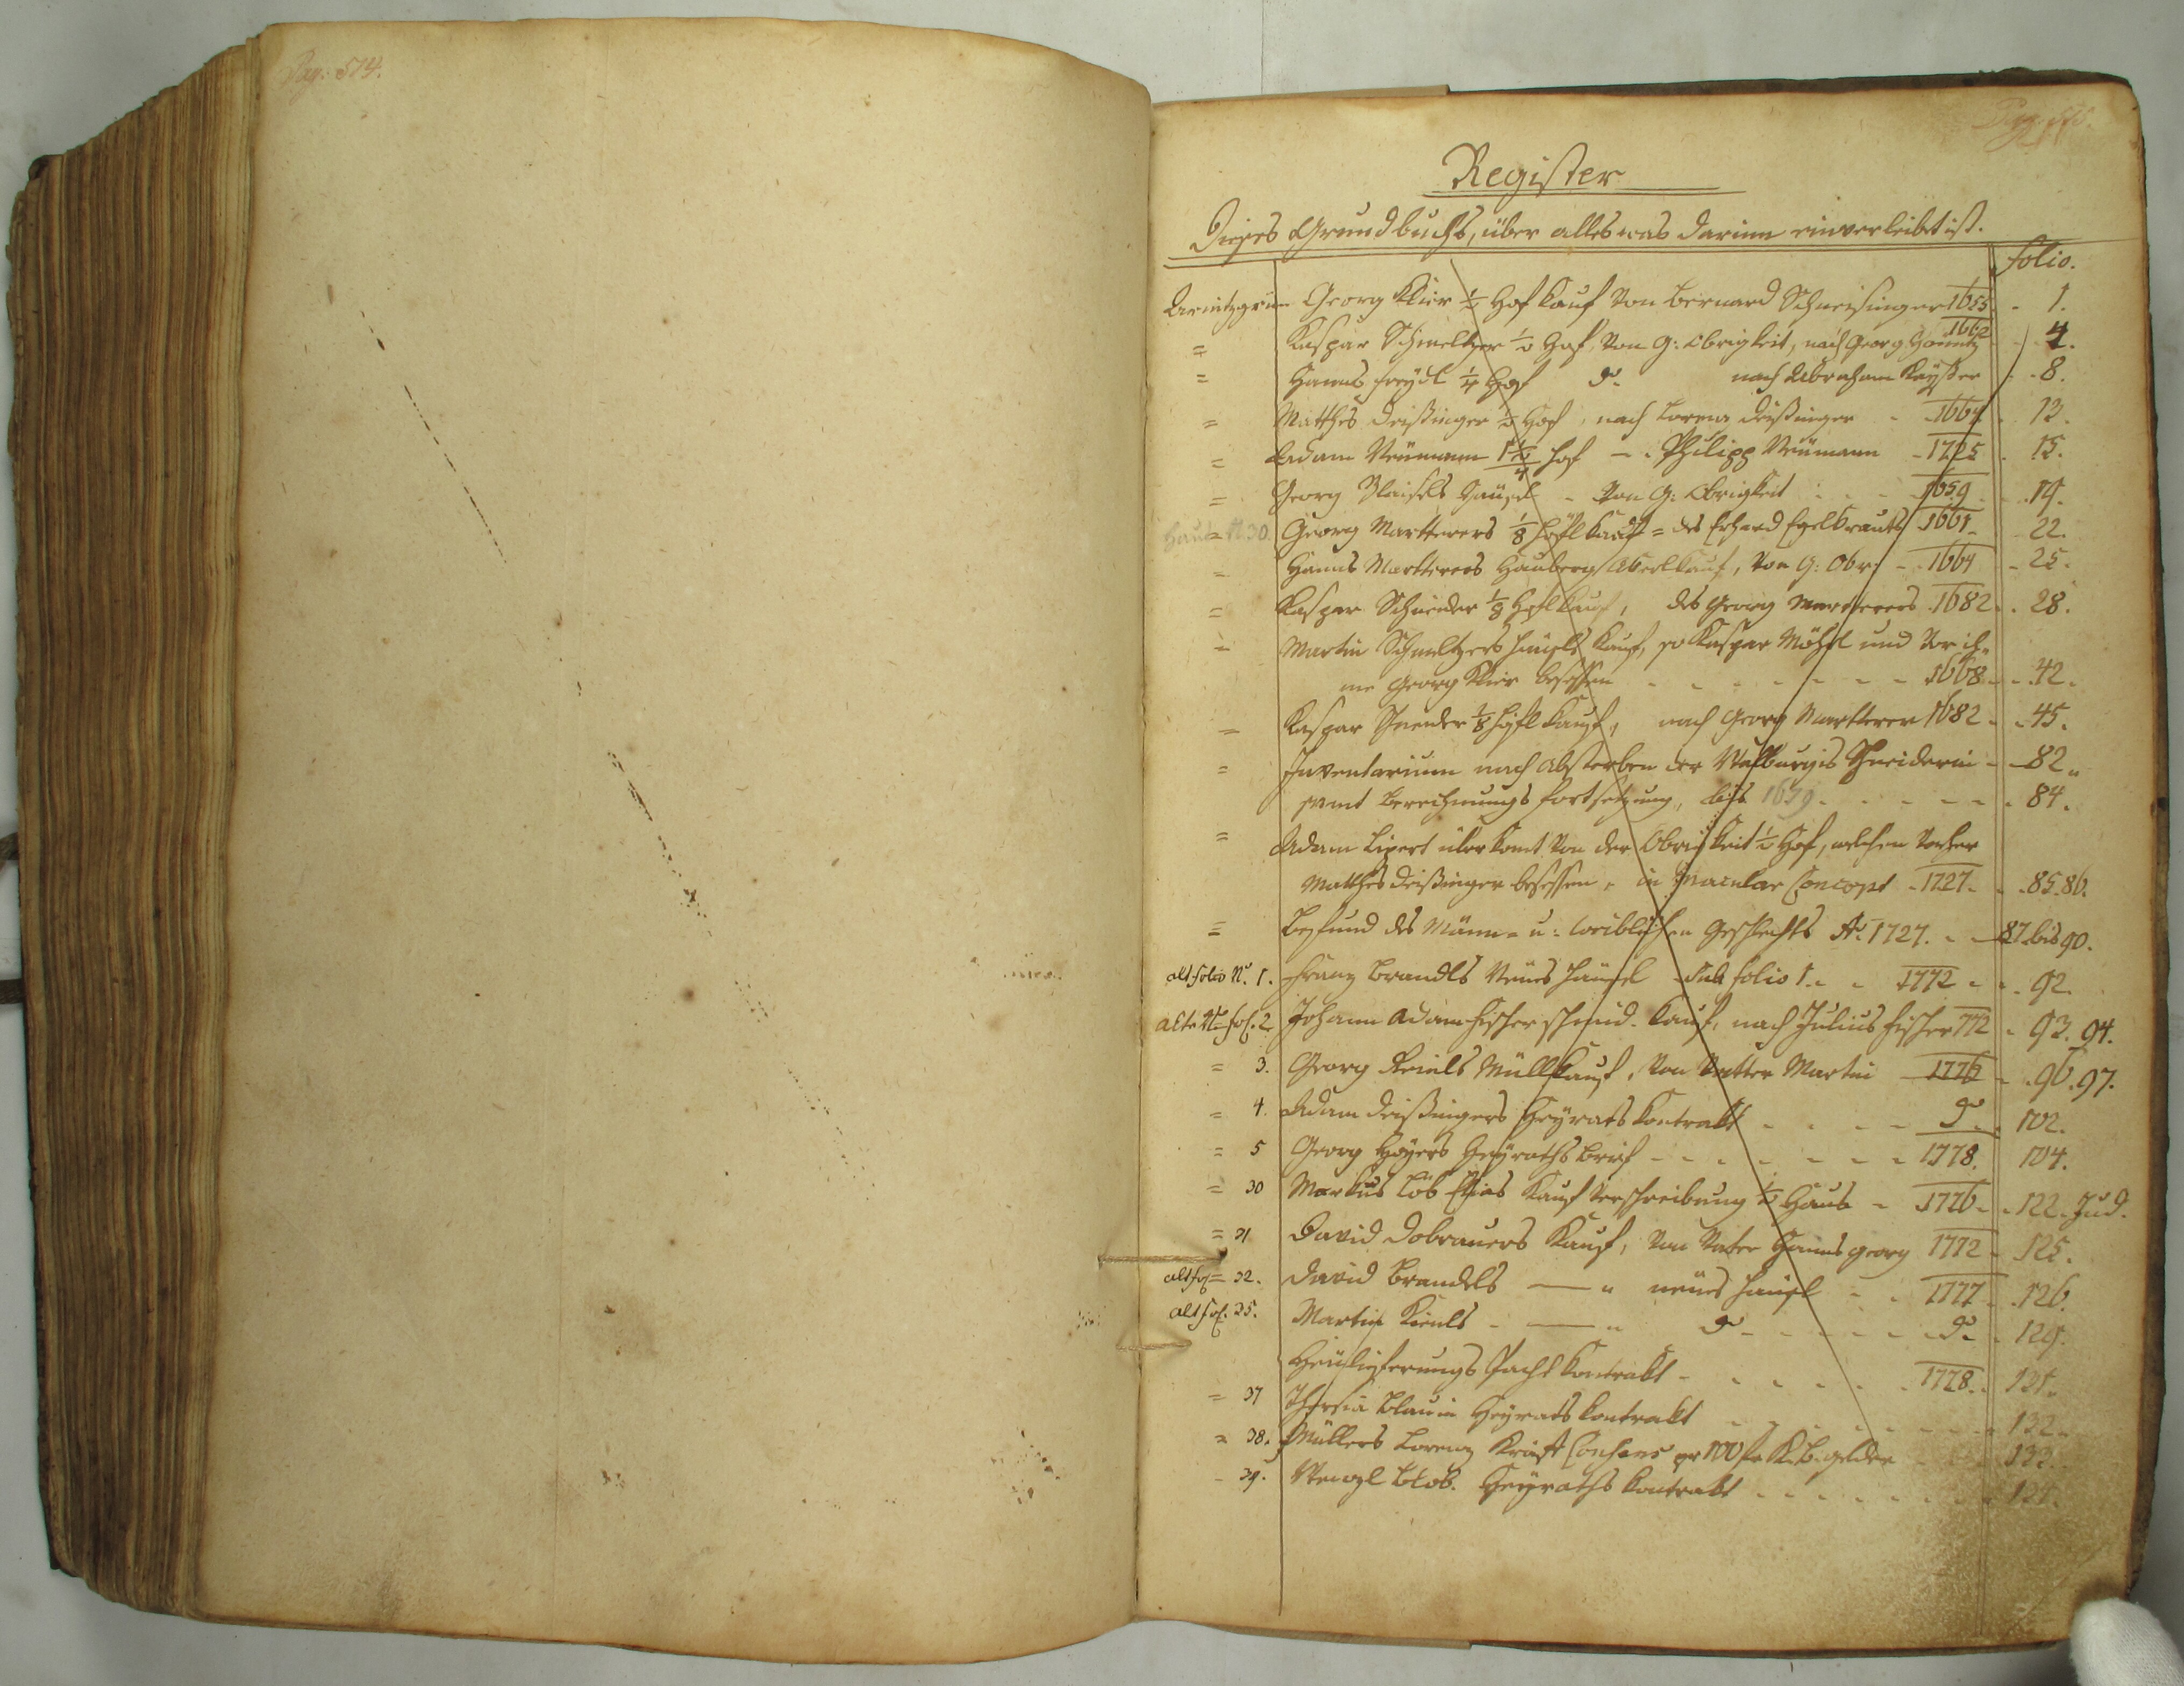 Pag. 574.
Pag. 575.
Register
Dieses Grundbuchs, über alles was darinn einverleibt ist.
folio.
Georg Klier ½ Hof kauf von Bernard 1655 - 1.
= Kaspar Schmeltzer ½ Hof, von G: Obrigkeit, nach Georg 1662 4.
= Hanns ¼ Hof do. nach Abraham Keyßer - 8.
= Matthes Deißinger ½ Hof, nach Lorenz Deißinger - 1664 - 13.
= Adam Neümann Hof - : Philipp Neümann - 1725 - 15.
= Georg Häusel - von G: Obrigkeit - 1659 - 19.
Haus N 30. Georg Martterers 1/8 Höfl kauf = des Erhard Egelkrauts 1661 - 22.
= Hanns Martterers kauf, von G: Obr: - 1664 - 25.
= Kaspar Schneider 1/8 Höfl kauf, des Georg Martterers 1682 - 28.
= Martin Schmeltzers Häusls kauf, so Kaspar und vor ih-
me Georg Klier besessen - 1668 - 42.
= Kaspar 1/8 Höfl kauf, nach Georg Martterer 1682 - 45.
= Inventarium nach Absterben der Walburgis Schneiderin - 82.
samt Berechnungs fortsetzung, bis 1679 - 84.
= Adam Lipert überkomt von der Obrigkeit ½ Hof, welchen vorher
Matthes Deißinger besessen, in Concept - 1727 - 85.86.
= Befund des Männ- u: weiblichen Geschlechts Ao 1727. - 87 bis 90.
alt folio No. 1. Franz Brandls Neües Häusel sub folio 1. - 1772 - 92.
alte No fol. 2. Johann Adam Fischer kauf, nach Julius Fischer 772 - 93. 94.
= 3. Georg Müllkauf, von Vatter Martin 1776 - 96.97.
= 4. Adam Deißingers Heyrats Kontrakt - do - 102.
= 5 Georg Heyraths Brief - 1778. 104.
= 30 Markus Löb Elias Kauf Verschreibung ½ Haus - 1776 - 122. Jud.
= 31 David Dobrauers Kauf, von Vater Hanns georg 1772 - 125.
alt fol = 32. David Brandls — " neües Häusl - 1777 - 126.
alt fol. 35. Martin Kienls - — " do - do - 129.
Pacht Kontrakt - 1778. 131.
= 37 Theresia Heyrats Kontrakt - 132.
= 38. Müllers Lorenz Consens pr 100 f - 133.
- 39. Wenzl Heyraths Kontrakt - 134.